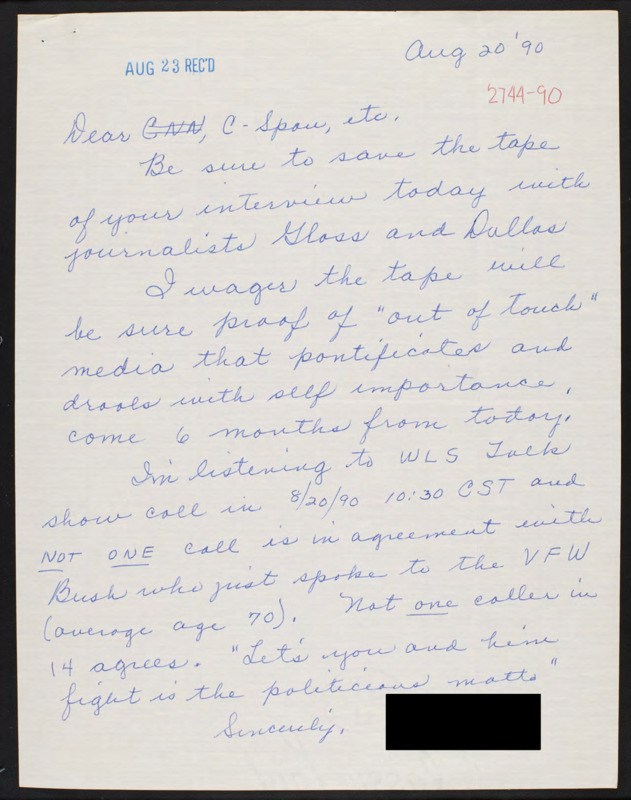 Aug 20 '90
AUG 23 REC'D
2744-90
Dear CNN, C-Span, etc.
Be sure to save the tape
of your interview today with
journalists Glass and Dallas
I wager the tape will
be sure proof of "out of touch"
media that pontificates and
drools with self importance,
come 6 months from today.
I'm listening to WLS Talk
show call in 8/20/90 10:30 CST and
NOT ONE call is in agreement with
Bush who just spoke to the VFW
(average age 70). Not one caller in
14 agrees. "Let's you and him
fight is the politicians motto"
Sincerely,